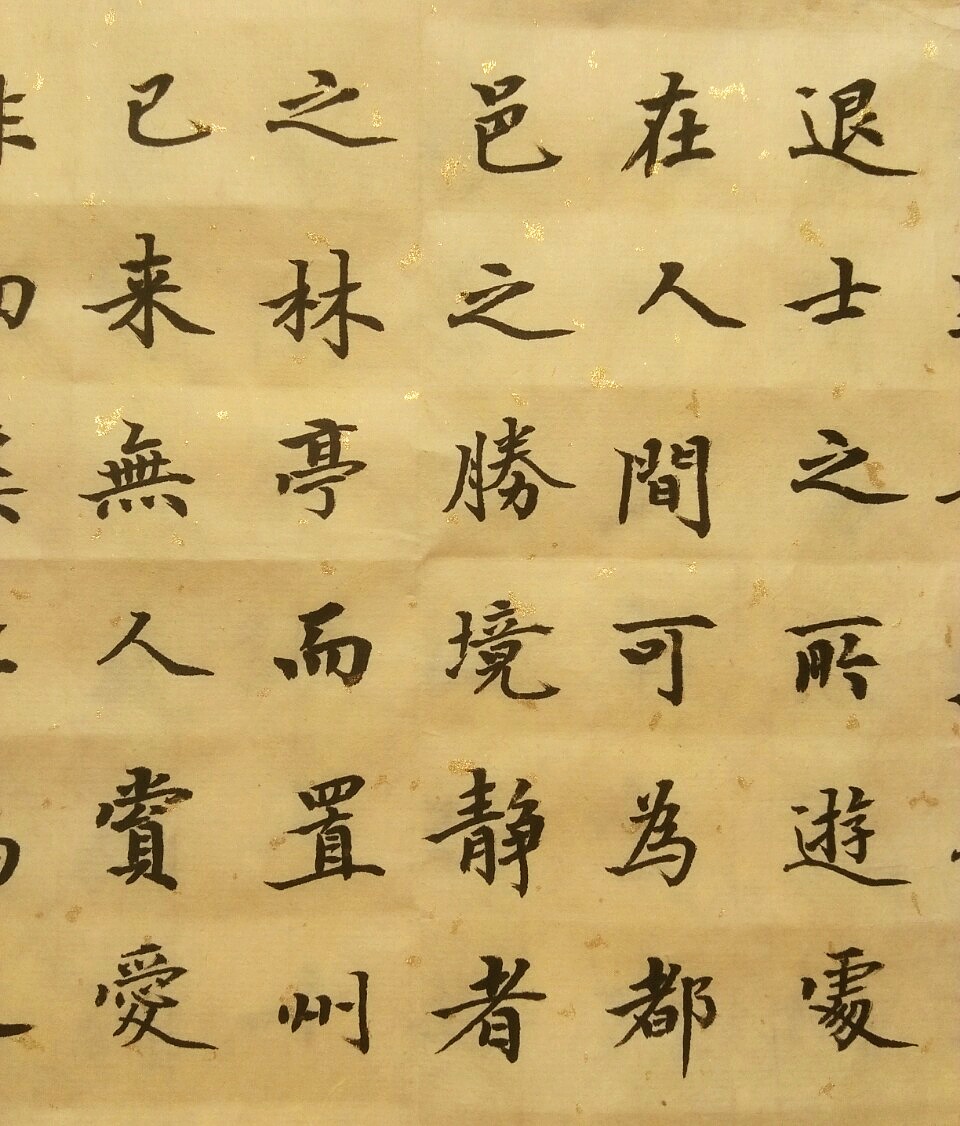 退士之所遊處
在人間可為都
邑之勝境靜者
之林亭而置州
已来無人賞愛